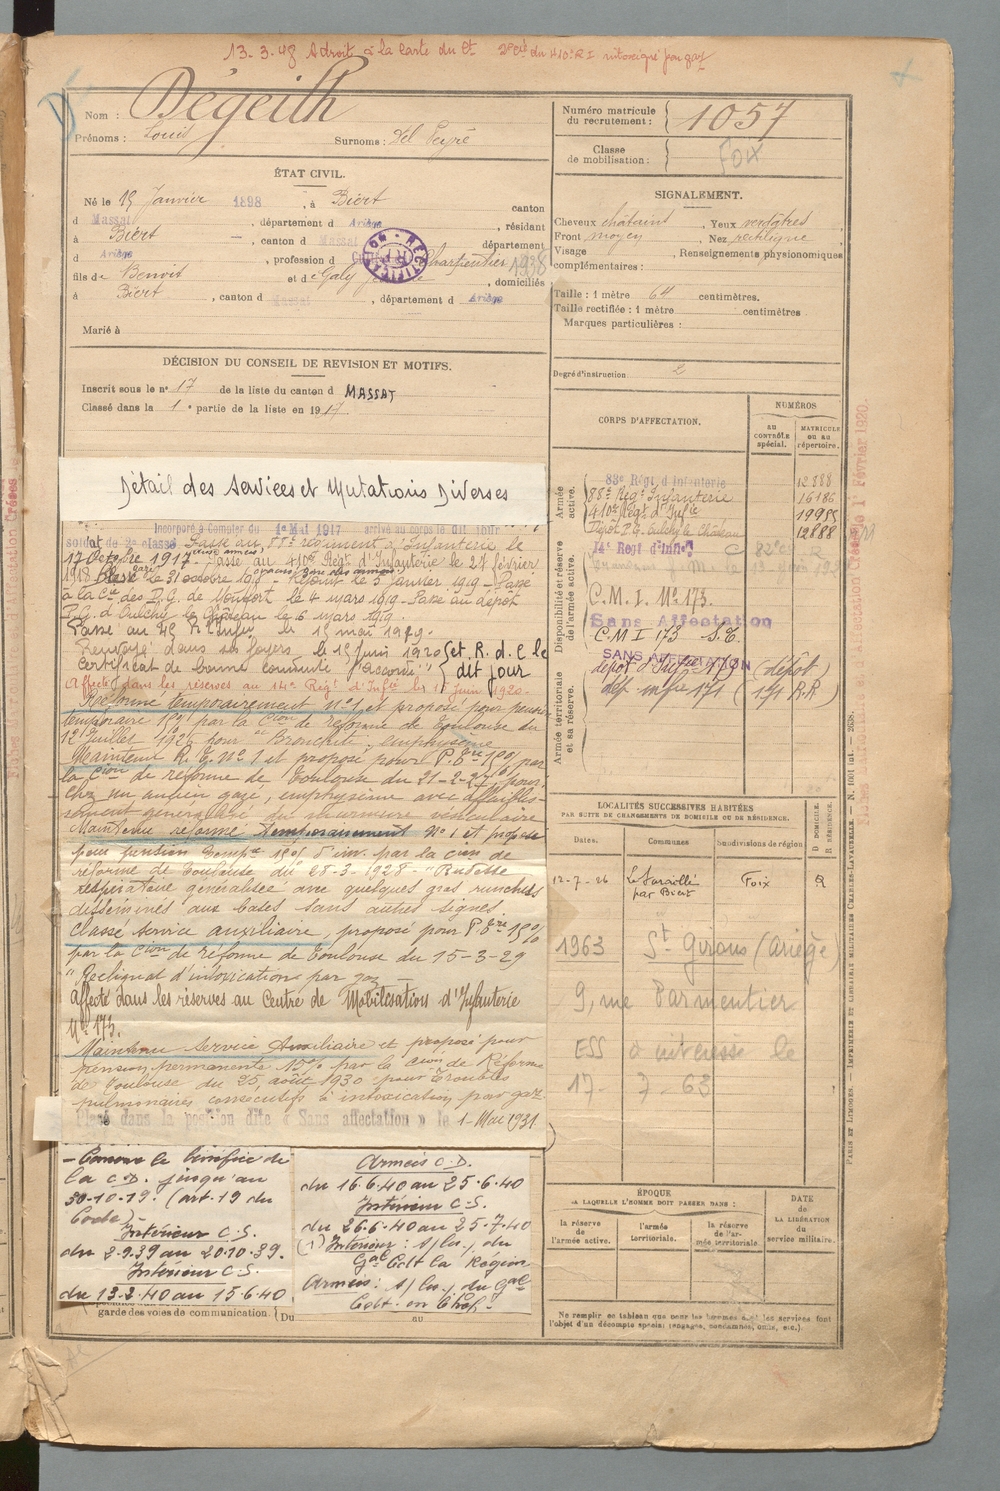 13.3.48 A droit à la Carte du Ct 2e cie du 410e R I intoxiqué par gaz
Nom : Dégeilh
Prénoms : Louis Surnoms : Del Peyré
Numéro matricule du recrutement : 1057
Classe de mobilisation :
Foix
ÉTAT CIVIL.
Né le 19 Janvier 1898, à Biert canton
d Massat, département d Ariège, résidant
à Biert, canton d Massat département
d Ariège, profession d Charpentier 1938
fils de Benoit et de Galy, domiciliés
à Biert, canton d Massat, département d Ariège
Marié à
SIGNALEMENT.
Cheveux châtains, Yeux verdâtres
Front moyen, Nez rectiligne
Visage, Renseignements physionomiques
complémentaires :
Taille : 1 mètre 64 centimètres.
Taille rectifiée : 1 mètre centimètres
Marques particulières :
Degré d'instruction 2
DÉCISION DU CONSEIL DE REVISION ET MOTIFS.
Inscrit sous le no 17 de la liste du canton d MASSAT
Classé dans la 1e partie de la liste en 1917
Détail des Services et Mutations Diverses
Incorporé à Compter du 1er Mai 1917 arrivé au corps le dit jour
soldat de 2e classe Passe au 88e régiment d'Infanterie le
17 Octobre 1917. Passé au 410e Régt d'Infanterie le 27 février
1918 le 31 octobre 1918 Rejoint le 5 janvier 1919 - Passe
à la Cie des P.G. de Montfort le 4 mars 1919 - Passe au dépôt
P.G. d'Oulchy le Château le 6 mars 1919.
Passé au R. d'Infie le 15 mai 1919.
Renvoyé dans ses foyers le 15 Juin 1920 et R. d. C le
Certificat de bonne conduite "Accordé" dit jour
Affecté dans les réserves au 14e Régt d'Infie le 1er Juin 1920.
Réformé temporairement no 1 et proposé pour pension
temporaire 10% par la Cion de réforme de Toulouse du
12 Juillet 192 pour Bronchite, emphysème
Maintenu R.T. no 1 et proposé pour P. Tre 10% par
la Cion de réforme de Toulouse du 21-2-27 pour
chez un ancien gazé, emphysème avec affaiblis-
sement généralisé du murmure vésiculaire
Maintenu réformé temporairement No 1 et proposé
pour pension tempre 10% d'inv. par la Cion de
réforme de Toulouse du 28-3-1928 - "Rudesse
respiratoire généralisée avec quelques gros ronchus
disséminés aux bases sans autres signes
Classé service auxiliaire, proposé pour P. Tre 15%
par la Cion de réforme de Toulouse du 15-3-29
"Reliquat d'intoxication par gaz -
Affecté dans les réserves au Centre de Mobilisation d'Infanterie
No 173.
Maintenu Service Auxiliaire et proposé pour
pension permanente 15% par la Cion de Réforme
de Toulouse du 25 août 1930 pour Troubles
pulmonaires consécutifs à intoxication par gaz.
Placé dans la position dite « Sans affectation » le 1-Mai 1931
- Conserve le bénéfice de
la C.D. jusqu'au
30.10.19. (art. 19 du
Code)
Intérieur C.S.
du 2.9.39 au 20.10.39.
Intérieur C.S.
du 13.2.40 au 15.6.40
Armées C.D.
du 16.6.40 au 25.6.40
Intérieur C.S.
du 26.6.40 au 25.7.40
(1) Intérieur : s/ du
Gal Cdt la Région
Armées : s/ du Gal
Cdt. en Chef
garde des voies de communication. Du au
CORPS D'AFFECTATION.
NUMÉROS
AU CONTRÔLE spécial.
MATRICULE ou au répertoire.
Armée active.
88e Régt d'Infanterie 12888
88e Régt Infanterie 16186
410e Régt d'Infie 19985
Dépôt P.G. Oulchy le Château 12888
Disponibilité et réserve de l'armée active.
14e Régt d'Infie
C.M.I. No 173.
Sans Affectation
C M I 173 S.E.
SANS AFFECTATION
dépôt d'Infie 173 (dépôt
dép. infie 171 (171 R.R)
Armée territoriale et sa réserve.
LOCALITÉS SUCCESSIVES HABITÉES
PAR SUITE DE CHANGEMENTS DE DOMICILE OU DE RÉSIDENCE.
Dates. Communes Subdivisions de région D DOMICILE. R RÉSIDENCE.
12-7-26 par Biert Foix R
1963 St Girons (Ariège)
9, rue Parmentier
ESS à intéressé le
17-7-63
ÉPOQUE
A LAQUELLE L'HOMME DOIT PASSER DANS :
DATE de LA LIBÉRATION du service militaire.
la réserve de l'armée active.
l'armée territoriale.
la réserve de l'armée territoriale.
Ne remplir ce tableau que pour les hommes dont les services font
l'objet d'un décompte spécial (engagés, condamnés, omis, etc.).
PARIS ET LIMOGES. — IMPRIMERIE ET LIBRAIRIE MILITAIRES CHARLES-LAVAUZELLE.